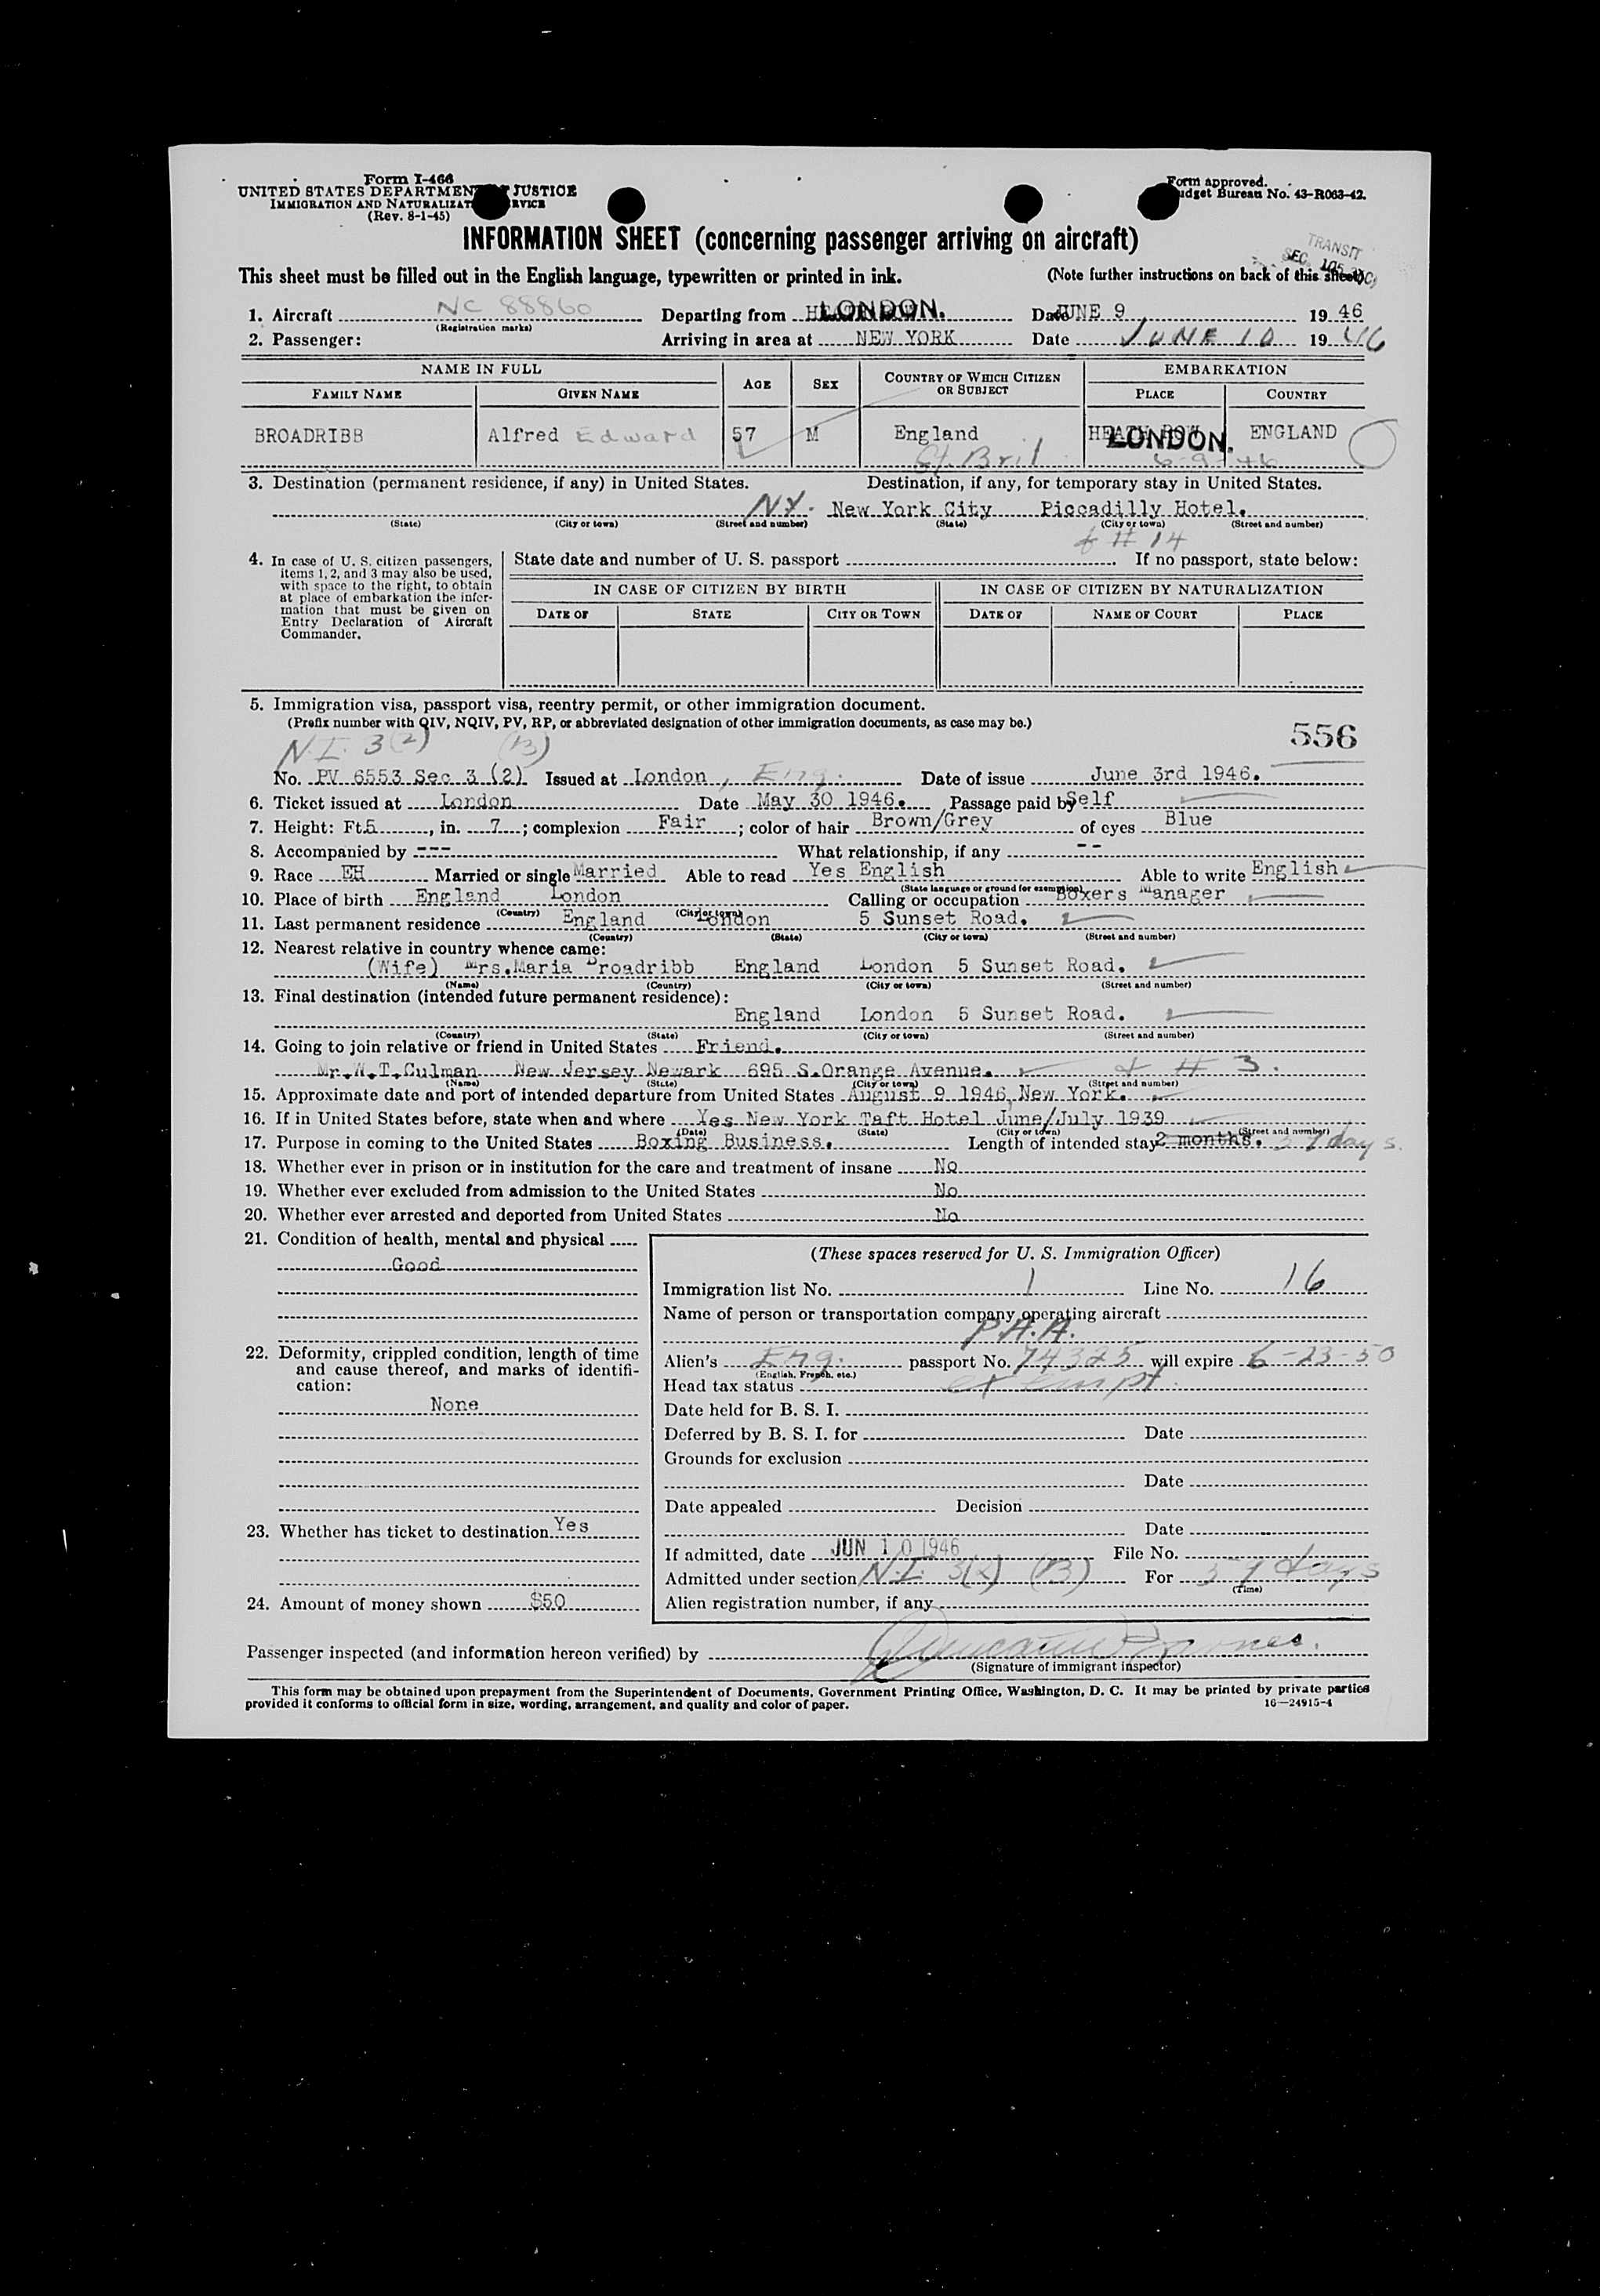 Form I-466
UNITED STATES DEPARTMENT JUSTICE
IMMIGRATION AND NATURALIZAT RVICE
(Rev. 8-1-45)
Form approved.
udget Bureau No. 43-R063-42.
INFORMATION SHEET (concerning passenger arriving on aircraft)
TRANSIT
SEC.
This sheet must be filled out in the English language, typewritten or printed in ink. (Note further instructions on back of this sheet)
1. Aircraft NC 88860 Departing from LONDON. Date JUNE 9 1946
(Registration marks)
2. Passenger: Arriving in area at NEW YORK Date JUNE 10 1946
NAME IN FULL AGE SEX COUNTRY OF WHICH CITIZEN OR SUBJECT EMBARKATION
FAMILY NAME GIVEN NAME PLACE COUNTRY
BROADRIBB Alfred Edward 57 M England HEATH ROW LONDON. ENGLAND
Gt. Brit 6-9-46
3. Destination (permanent residence, if any) in United States. Destination, if any, for temporary stay in United States.
NY. New York City Piccadilly Hotel.
(State) (City or town) (Street and number) (State) (City or town) (Street and number)
# 14
4. In case of U. S. citizen passengers, items 1, 2, and 3 may also be used, with space to the right, to obtain at place of embarkation the information that must be given on Entry Declaration of Aircraft Commander.
State date and number of U. S. passport If no passport, state below:
IN CASE OF CITIZEN BY BIRTH IN CASE OF CITIZEN BY NATURALIZATION
DATE OF STATE CITY OR TOWN DATE OF NAME OF COURT PLACE
5. Immigration visa, passport visa, reentry permit, or other immigration document.
(Prefix number with QIV, NQIV, PV, RP, or abbreviated designation of other immigration documents, as case may be.)
556
N.I. 3(2) (B)
No. PV 6553 Sec 3 (2) Issued at London, Eng. Date of issue June 3rd 1946.
6. Ticket issued at London Date May 30 1946. Passage paid by Self
7. Height: Ft. 5, in. 7; complexion Fair; color of hair Brown/Grey of eyes Blue
8. Accompanied by --- What relationship, if any --
9. Race EH Married or single Married Able to read Yes English Able to write English
(State language or ground for exemption)
10. Place of birth England London Calling or occupation Boxers Manager
(Country) (City or town)
11. Last permanent residence England London 5 Sunset Road.
(Country) (State) (City or town) (Street and number)
12. Nearest relative in country whence came:
(Wife) Mrs.Maria Broadribb England London 5 Sunset Road.
(Name) (Country) (City or town) (Street and number)
13. Final destination (intended future permanent residence):
England London 5 Sunset Road.
(Country) (State) (City or town) (Street and number)
14. Going to join relative or friend in United States Friend.
Mr.W.T.Culman New Jersey Newark 695 S.Orange Avenue. # 3.
(Name) (State) (City or town) (Street and number)
15. Approximate date and port of intended departure from United States August 9 1946, New York.
16. If in United States before, state when and where Yes New York Taft Hotel June/July 1939
(Date) (State) (City or town) (Street and number)
17. Purpose in coming to the United States Boxing Business. Length of intended stay 2 months. 59 days.
18. Whether ever in prison or in institution for the care and treatment of insane No
19. Whether ever excluded from admission to the United States No
20. Whether ever arrested and deported from United States No
21. Condition of health, mental and physical
Good
22. Deformity, crippled condition, length of time and cause thereof, and marks of identification:
None
23. Whether has ticket to destination Yes
24. Amount of money shown $50
(These spaces reserved for U. S. Immigration Officer)
Immigration list No. 1 Line No. 16
Name of person or transportation company operating aircraft
P.A.A.
Alien's Eng. passport No. 74325 will expire 6-23-50
(English, French, etc.)
Head tax status exempt.
Date held for B. S. I.
Deferred by B. S. I. for Date
Grounds for exclusion
Date
Date appealed Decision
Date
If admitted, date JUN 10 1946 File No.
Admitted under section N.I. 3(2) (B) For 59 days
(Time)
Alien registration number, if any
Passenger inspected (and information hereon verified) by
(Signature of immigrant inspector)
This form may be obtained upon prepayment from the Superintendent of Documents, Government Printing Office, Washington, D. C. It may be printed by private parties
provided it conforms to official form in size, wording, arrangement, and quality and color of paper. 16—24915-4